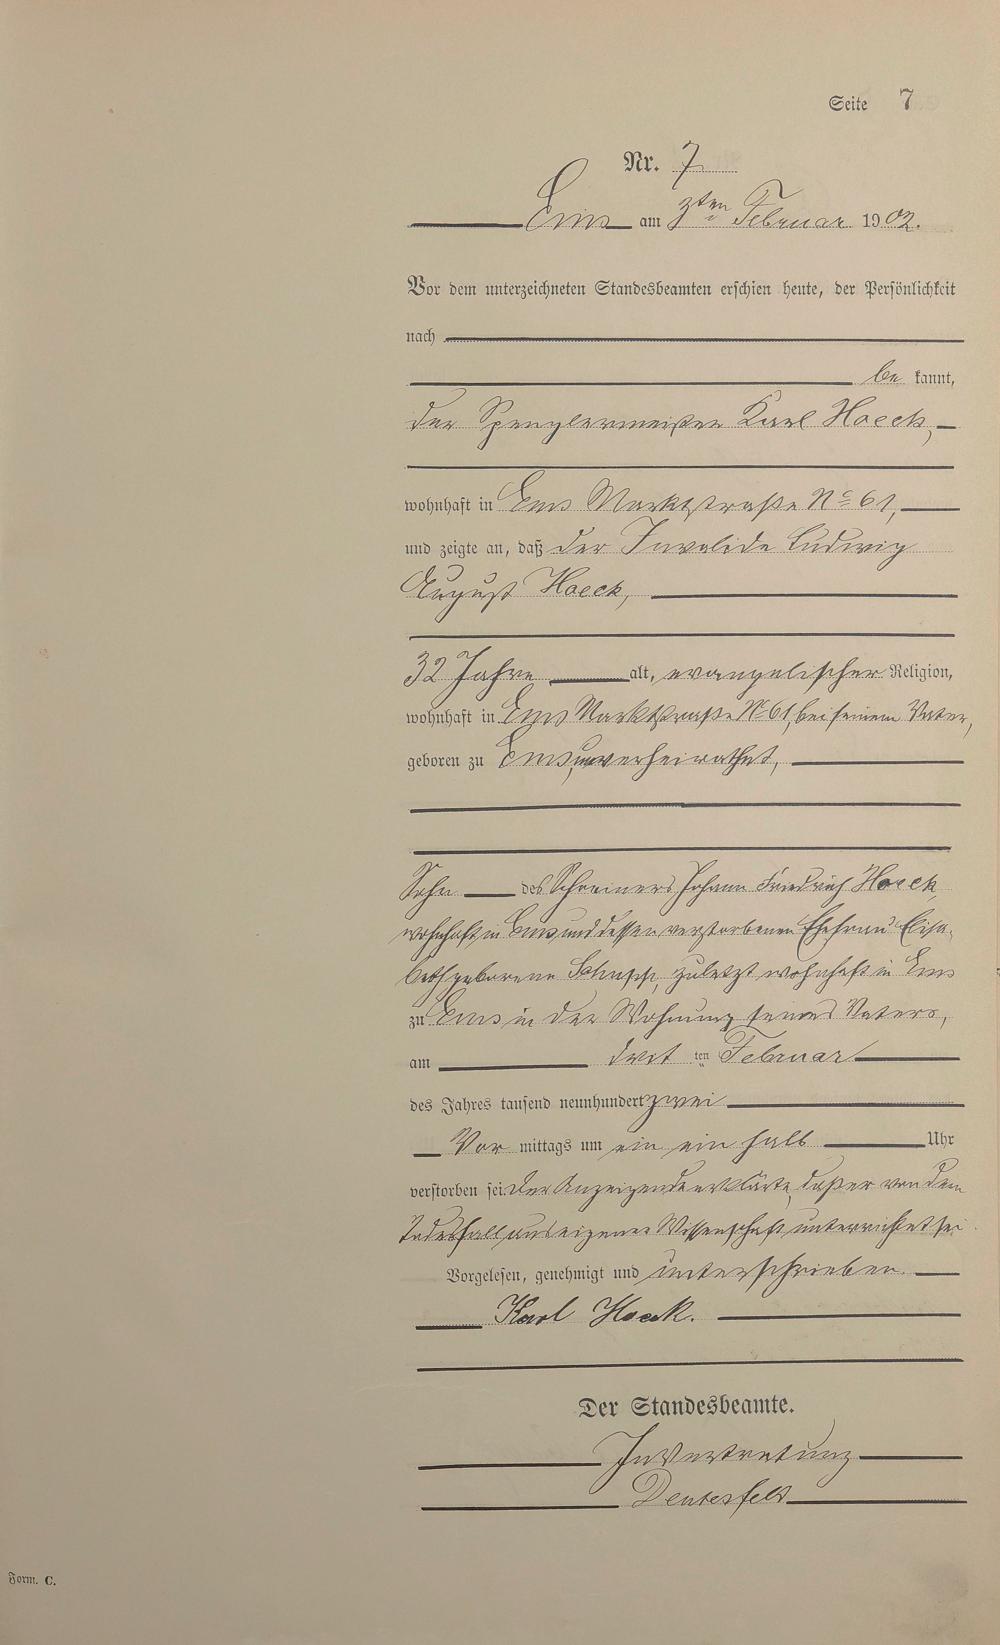 Seite 7
Nr. 7
Ems am 3ten Februar 1902.
Vor dem unterzeichneten Standesbeamten erschien heute, der Persönlichkeit
nach
be kannt,
der Spenglermeister Karl Hoeck,
wohnhaft in Ems Marktstraße No 61,
und zeigte an, daß der Invalide Ludwig
August Hoeck,
32 Jahre alt, evangelischer Religion,
wohnhaft in Ems Marktstraße No 61, bei seinem Vater,
geboren zu Ems, unverheirathet,
Sohn des Schreiners Johann Friedrich Hoeck,
wohnhaft in Ems und dessen verstorbenen Ehefrau Elisa-
beth geborene zuletzt wohnhaft in Ems
zu Ems in der Wohnung seines Vaters,
am drit ten Februar
des Jahres tausend neunhundert zwei
Vor mittags um ein ein halb Uhr
verstorben sei. Der Anzeigende erklärte, daß er von dem
Todesfall aus eigener Wissenschaft unterrichtet sei.
Vorgelesen, genehmigt und unterschrieben.
Karl Hoeck.
Der Standesbeamte.
In Vertretung
Form. C.